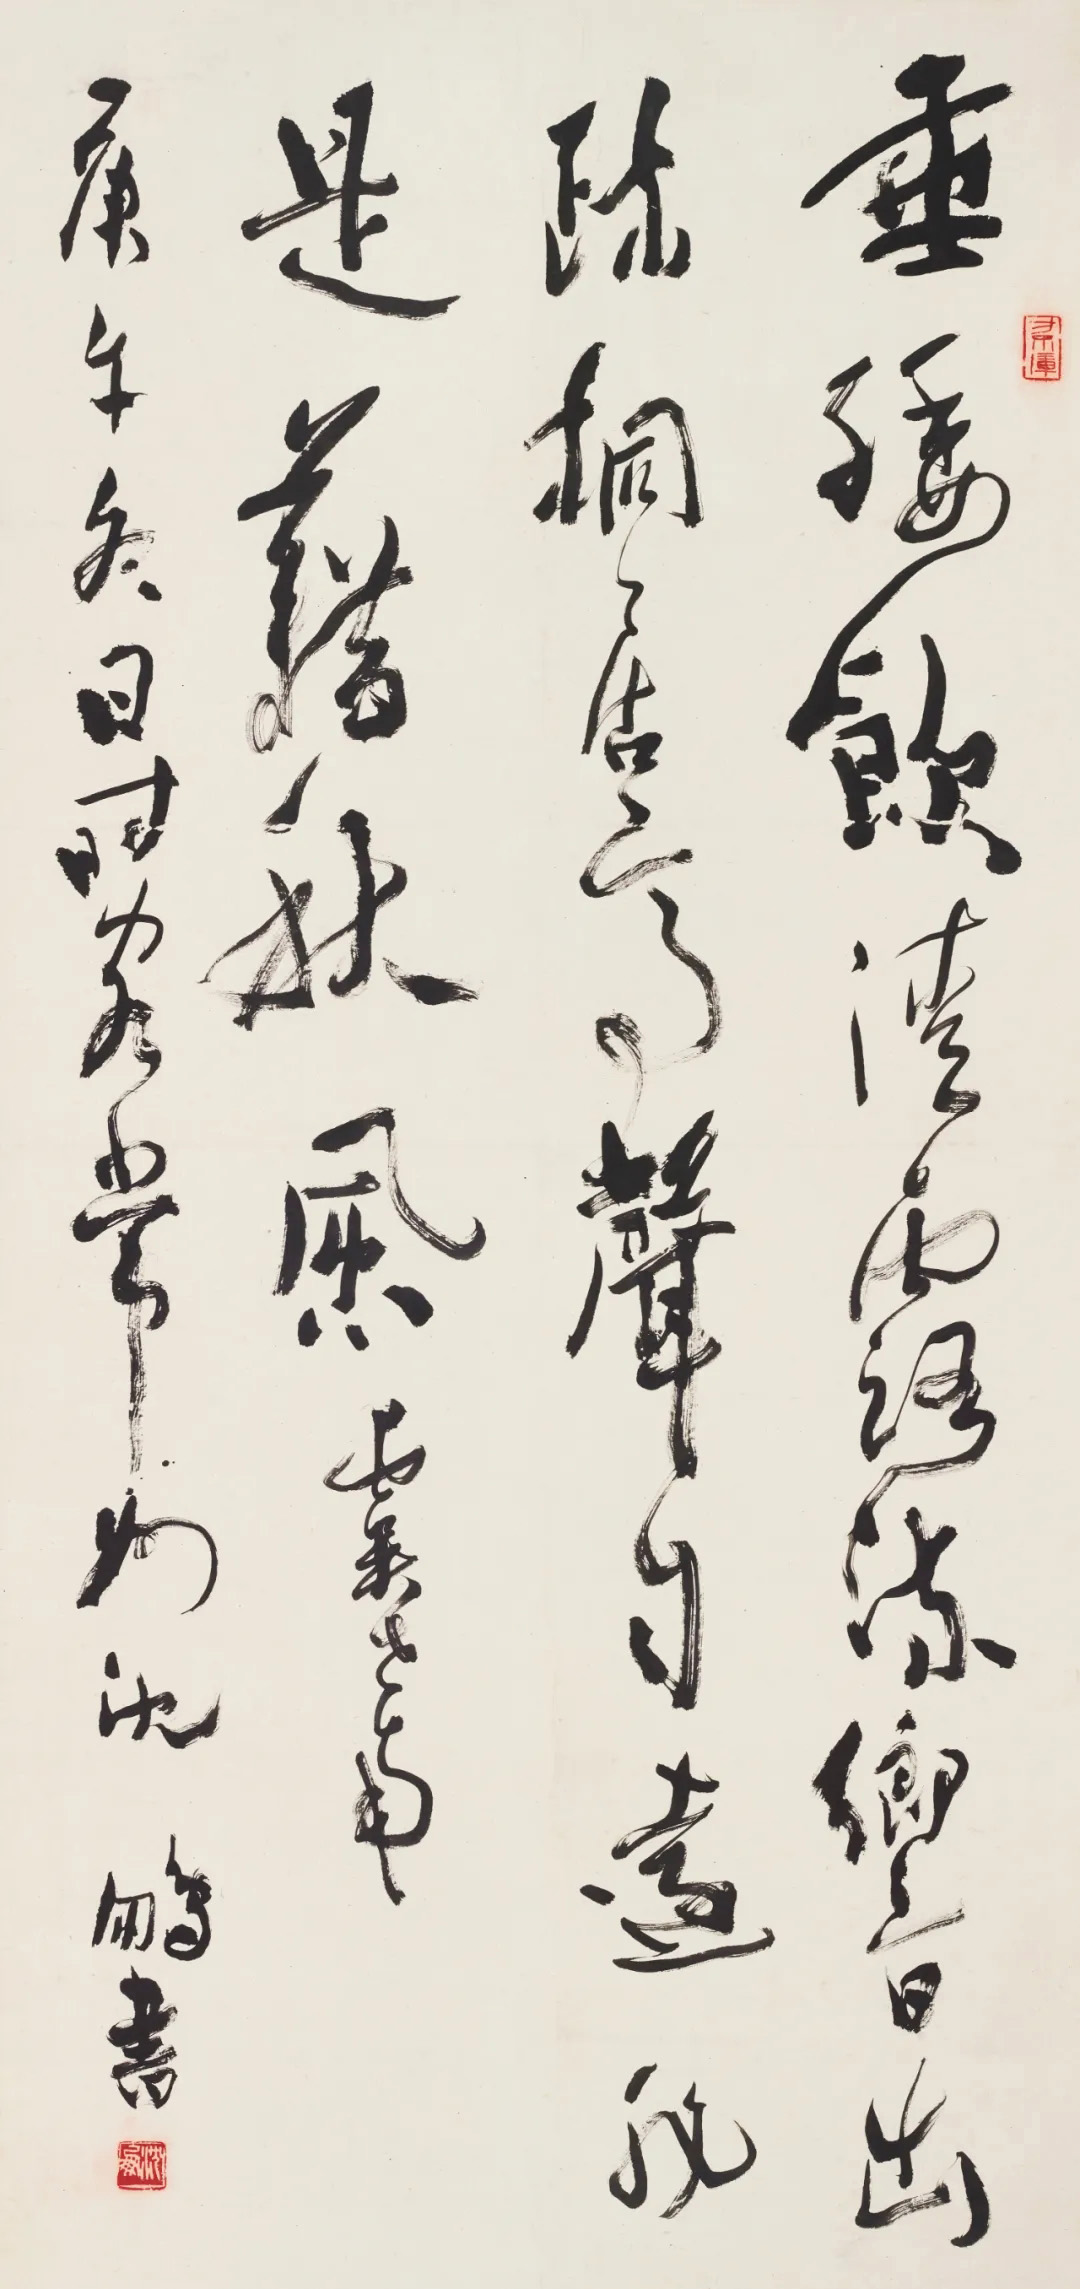 垂緌飲清露流響出
疏桐居高聲自遠非
是藉秋風 虞世南
庚午冬日時客常州沈鵬書
沈鵬